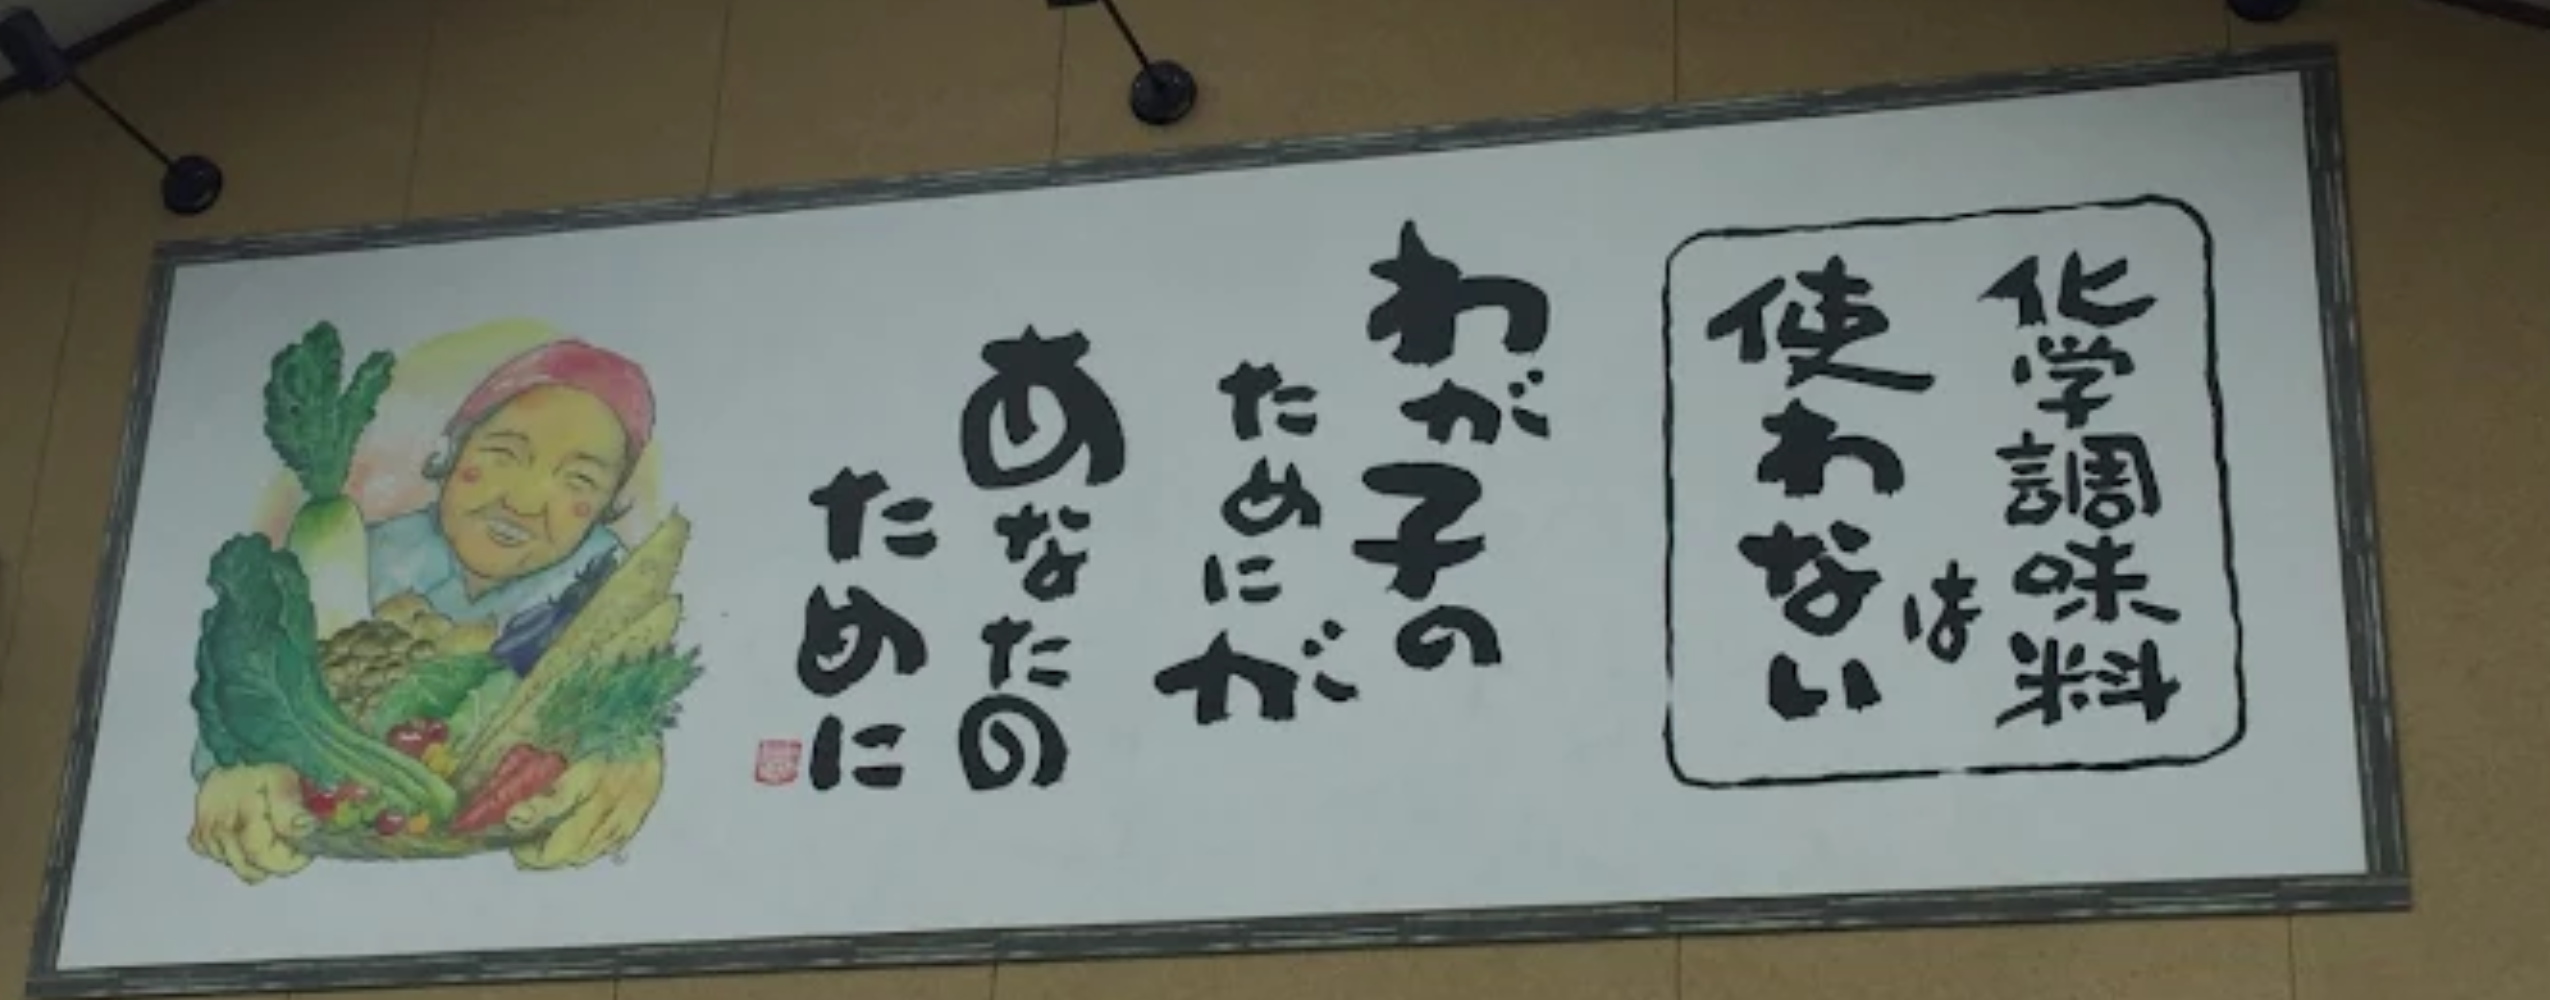 化学調味料は
使わない
わが子の
ためにが
あなたの
ために